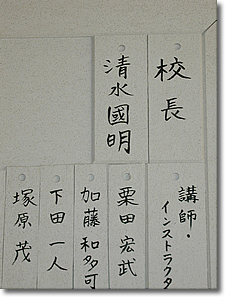 校長
清水國明
講師・インストラクタ
栗田宏武
加藤和多可
下田一人
塚原茂